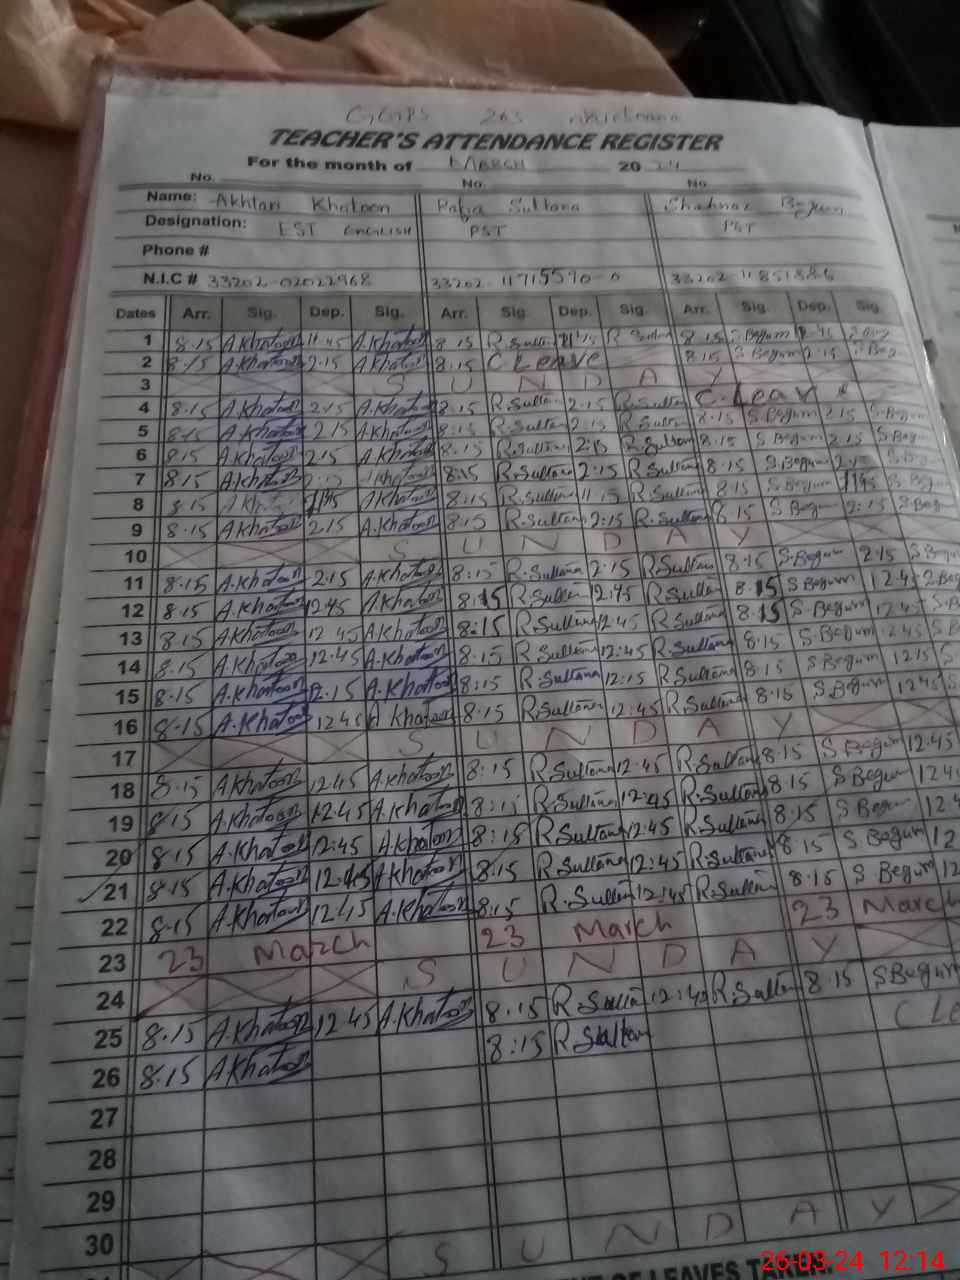 GGPS 263
TEACHER'S ATTENDANCE REGISTER
For the month of MARCH 20 24
No. No. No.
Name: Akhtari Khatoon Rafia Sultana Shahnaz Begum
Designation: EST ENGLISH PST PST
Phone #
N.I.C # 33202-02022968 33202-11715590-0
Dates Arr. Sig. Dep. Sig. Arr. Sig. Dep. Sig. Arr. Sig. Dep. Sig.
1 8.15 A.Khatoon 11.45 A.Khatoon 8.15 R.Sultan 8.15 S.Begum
2 8.15 A.Khatoon 2.15 A.Khatoon 8:15 C Leave 8.15 S.Begum 2.15
3 S U N D A Y
4 8.15 A.Khatoon 2.15 A.Khatoon 8.15 R.Sultan 2.15 R.Sultan C. Leav
5 8.15 A.Khatoon 2.15 A.Khatoon 8.15 R.Sultan 2.15 R.Sultan 8.15 S.Begum 2.15
6 8.15 A.Khatoon 2.15 A.Khatoon 8.15 R.Sultan R.Sultan 8.15 S.Begum 2.15 S.Begum
7 8.15 A.Khatoon A.Khatoon 8.15 R.Sultan 2.15 R.Sultan 8.15 S.Begum 2.15
8 8.15 A.Khatoon 8:15 R.Sultan R.Sultan 8.15 S.Begum
9 8.15 A.Khatoon 2.15 A.Khatoon 8:15 R.Sultana 2:15 R.Sultana 8.15 S.Begum 2:15 S.Begum
10 S U N D A Y
11 8.15 A.Khatoon 2.15 A.Khatoon 8:15 R.Sultana 2:15 R.Sultana 8.15 S.Begum 2.15 S.Begum
12 8.15 A.Khatoon 12.45 A.Khatoon 8:15 R.Sultan 12:45 R.Sultan 8.15 S.Begum 12.45 S.Begum
13 8.15 A.Khatoon 12.45 A.Khatoon 8:15 R.Sultana 12:45 R.Sultana 8.15 S.Begum 12.45
14 8.15 A.Khatoon 12.45 A.Khatoon 8:15 R.Sultana 12:45 R.Sultana 8.15 S.Begum 12.45
15 8.15 A.Khatoon 12.15 A.Khatoon 8:15 R.Sultana 12:15 R.Sultana 8.15 S.Begum 12.15
16 8.15 A.Khatoon 12.45 A.Khatoon 8:15 R.Sultana 12:45 R.Sultana 8.15 S.Begum 12.45
17 S U N D A Y
18 8.15 A.Khatoon 12.45 A.Khatoon 8:15 R.Sultana 12:45 R.Sultana 8.15 S.Begum 12.45
19 8.15 A.Khatoon 12.45 A.Khatoon 8:15 R.Sultana 12:45 R.Sultana 8.15 S.Begum
20 8.15 A.Khatoon 12:45 A.Khatoon 8:15 R.Sultana 12:45 R.Sultana 8.15 S.Begum
21 8.15 A.Khatoon 12.45 A.Khatoon 8:15 R.Sultana 12:45 R.Sultana 8.15 S.Begum
22 8.15 A.Khatoon 12.45 A.Khatoon 8:15 R.Sultan 12:45 R.Sultan 8.15 S.Begum
23 23 March 23 March 23 March
24 S U N D A Y
25 8.15 A.Khatoon 12.45 A.Khatoon 8:15 R.Sultan 12:45 R.Sultan 8.15 S.Begum
26 8.15 A.Khatoon 8:15 R.Sultan C Le
27
28
29
30
S U N D A Y
OF LEAVES
26-03-24 12:14